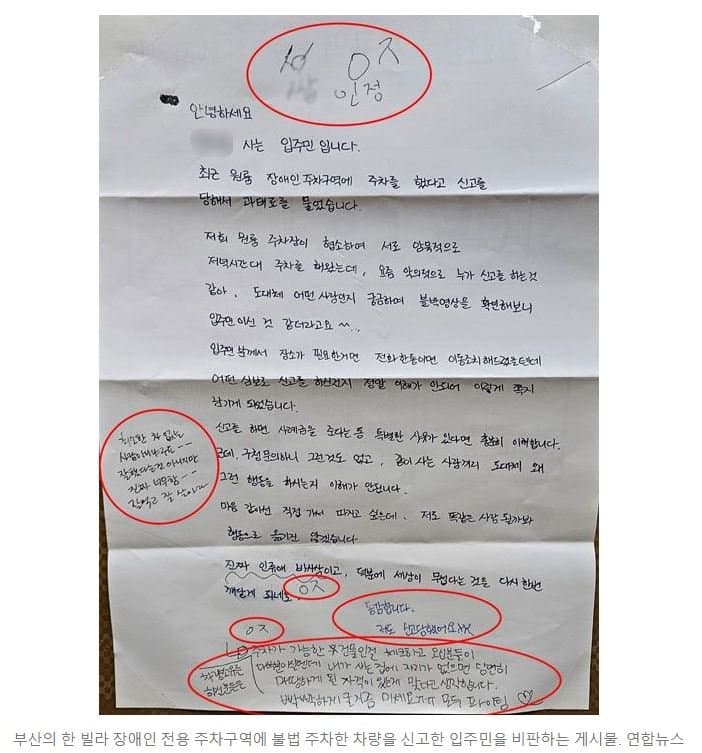 ㅇㅈ
인정
안녕하세요
시는 입주민입니다.
최근 원룸 장애인 주차구역에 주차를 했다고 신고를
당해서 과태료를 물었습니다.
저희 원룸 주차장이 협소하여 서로 암묵적으로
저녁시간대 주차를 해왔는데, 요즘 악의적으로 누가 신고를 하는것
같아, 도대체 어떤 사람인지 궁금하여 블박영상을 확인해보니
입주민이신 것 같더라고요 ^^..
입주민 분께서 장소가 필요한거면 전화한통이면 이동조치 해드렸을텐데
어떤 심보로 신고를 하신건지 정말 이해가 안되어 이렇게 쪽지
남기게 되었습니다.
신고를 하면 사례금을 준다는 등 특별한 사유가 있다면 충분히 이해합니다.
근데, 구청 문의하니 그런것도 없고, 같이 사는 사람끼리 도대체 왜
그런 행동을 하시는지 이해가 안됩니다.
마음 같아선 직접 가서 따지고 싶은데, 저도 똑같은 사람 될까봐
행동으로 옮기진 않겠습니다
진짜 인류애 박살이고, 덕분에 세상이 무섭다는 것을 다시 한번
깨닫게 되네요.
ㅇㅈ
사람이
잘했다는것 아니지만
진짜 너무함--
잘 살아라
동감합니다.
저도 신고당했어요 ㅠㅠ
ㅇㅈ
주차가 가능한 건물인걸 체크하고 오신분들이
내가 사는 집에 자리가 없으면 당연히
대당하게 된 자격이 있는게 맞다고 생각합니다.
차량소유는
하신분들은
모두 파이팅 ♡
부산의 한 빌라 장애인 전용 주차구역에 불법 주차한 차량을 신고한 입주민을 비판하는 게시물. 연합뉴스